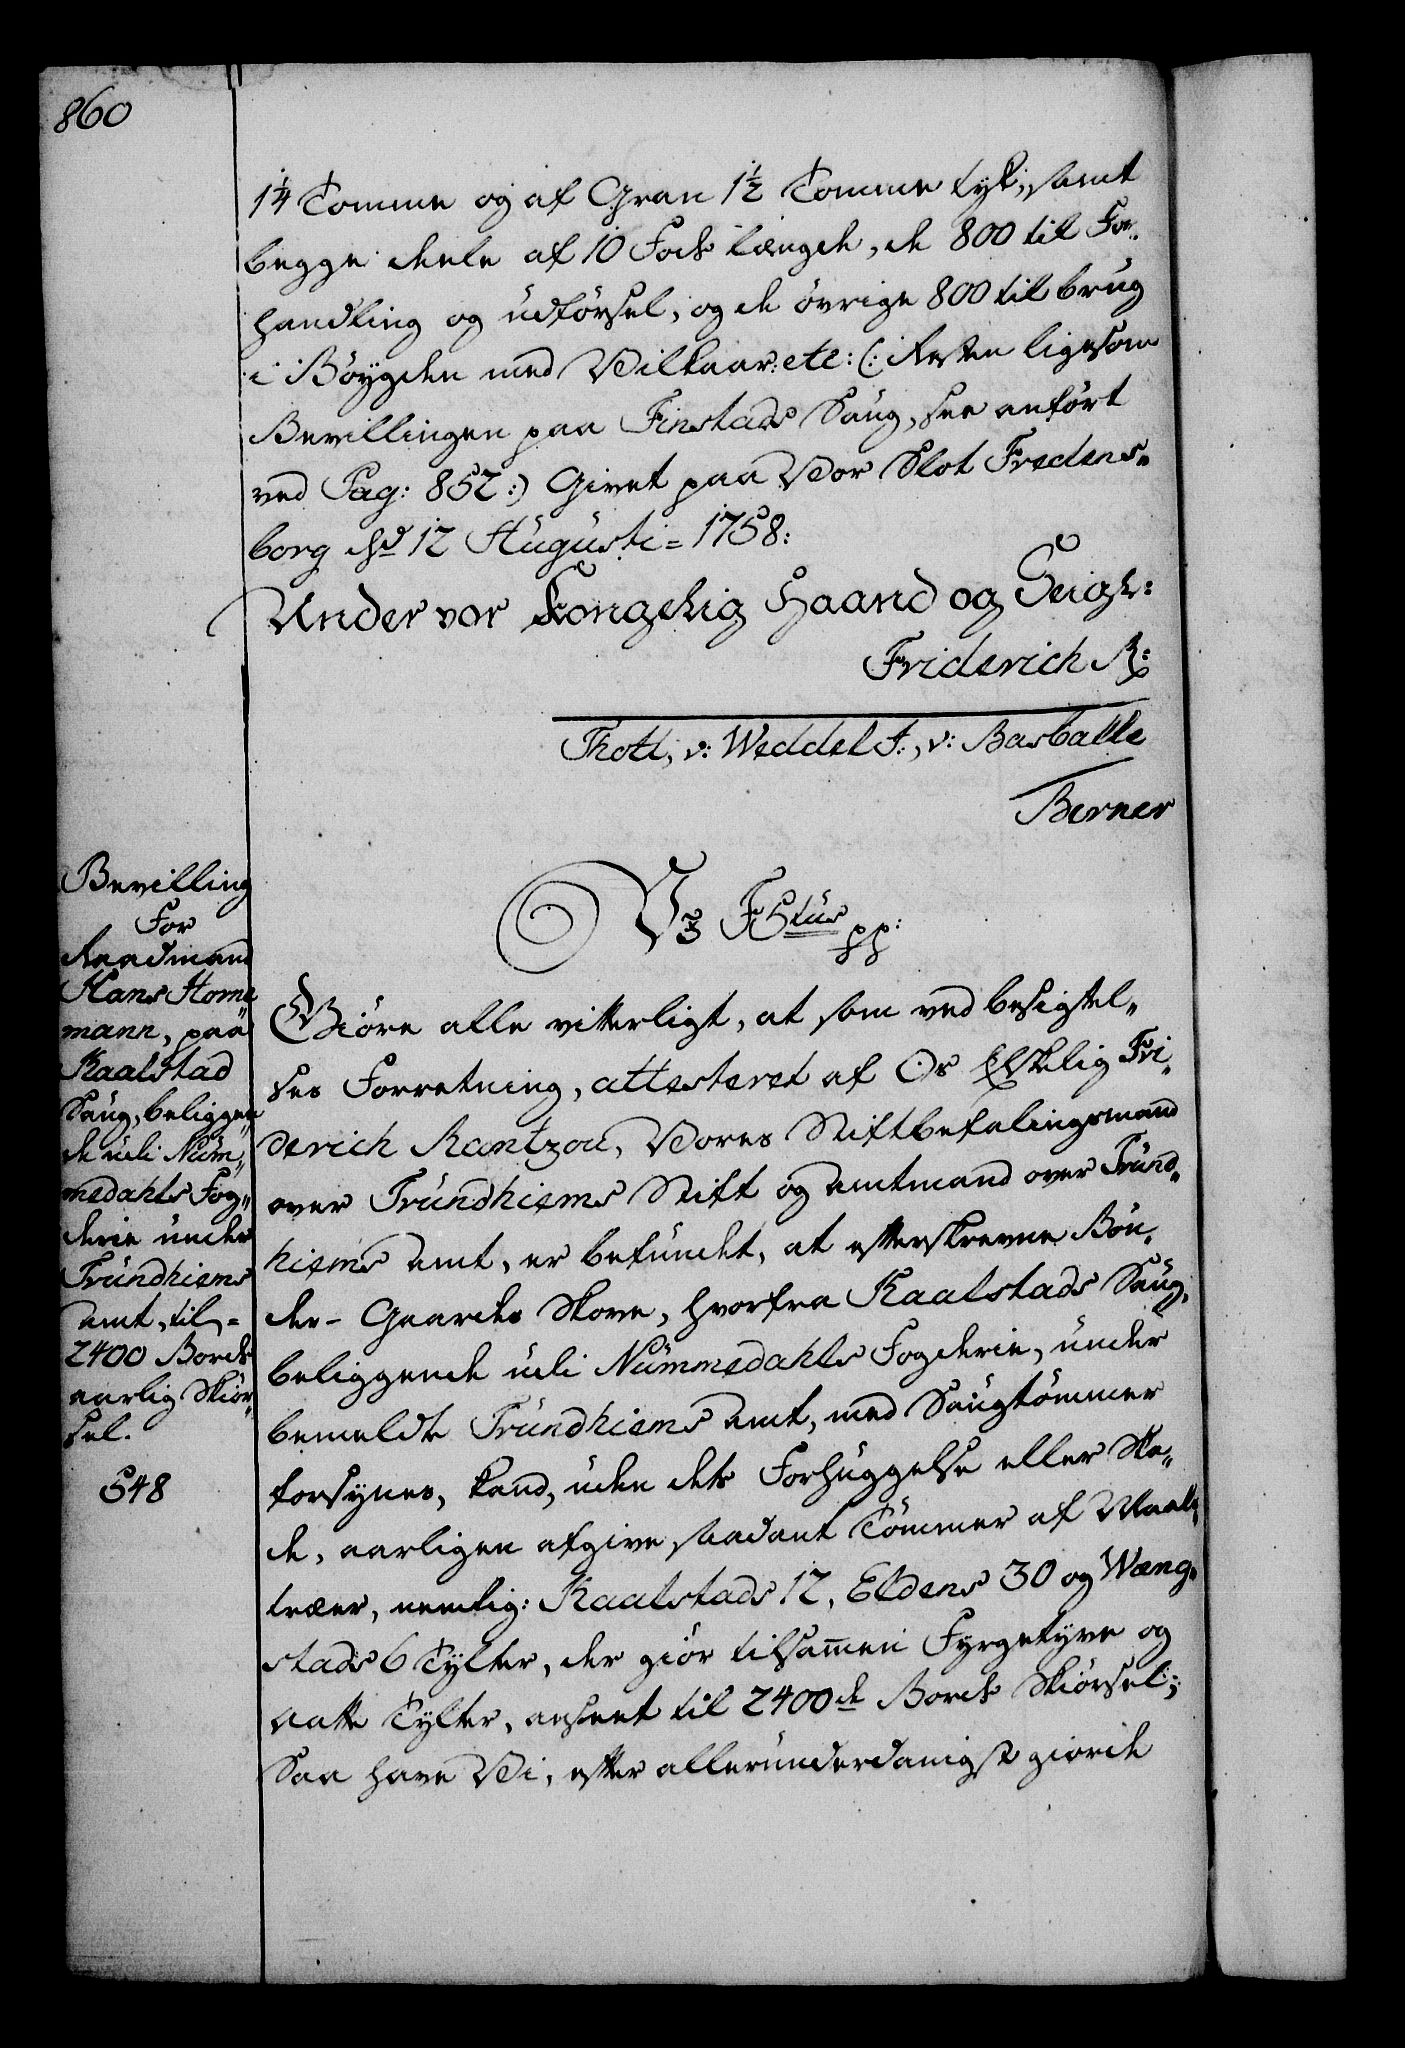 860
1¼ Tomme og af Gran 1½ Tomme tyk, samt
begge deele af 10 Fods længde, de 800 til For,
handling og udførsel, og de øvrige 800 til brug
i Bøygden med Vilkaar: etc: (: Resten ligesom
Bevillingen paa Finstads Saug, see anført
ved Pag: 852:) Givet paa Vor Slot Fredens„
borg d: 12 Augusti = 1758:
Under vor Kongelig Haand og Seigl:
Friderich R:
Thott, v: Weddel F:, v: Barballe
Berner
Bevilling
For
Raadmand
Hans Horne
mann, paa
Kaalstad
Saug, beliggen„
de udi Num„
medahls Fog„
derie under
Trundhiems
Amt, til =
2400 Bords
aarlig Skiør„
sel.
548
V: F 5tus pp:
Giøre alle vitterligt, at som ved besigtel„
ses Forretning, attesteret af Os Elskelig Fri„
derich Rantzou, Vores Stiftbefalingsmand
over Trundhiems Stift og Amtmand over Trund„
hiems Amt, er befundet, at efterskrevne Bøn„
der- Gaardes Skove, hvorfra Kaalstads Saug,
beliggende udi Nummedahls Fogderie, under
bemeldte Trundhiems Amt, med Saugtømmer
forsynes, kand, uden dets Forhuggelse eller Ska„
de, aarligen afgive saadant Tømmer af Maals„
træer, nemlig: Kaalstads 12, Eldens 30 og Wæng„
stads 6 Tylter, der giør tilsammen Fyrgetyve og
Aatte Tylter, anseet til 2400de Bords Skiørsel;
Saa have Vi, efter allerunderdanigst giorde